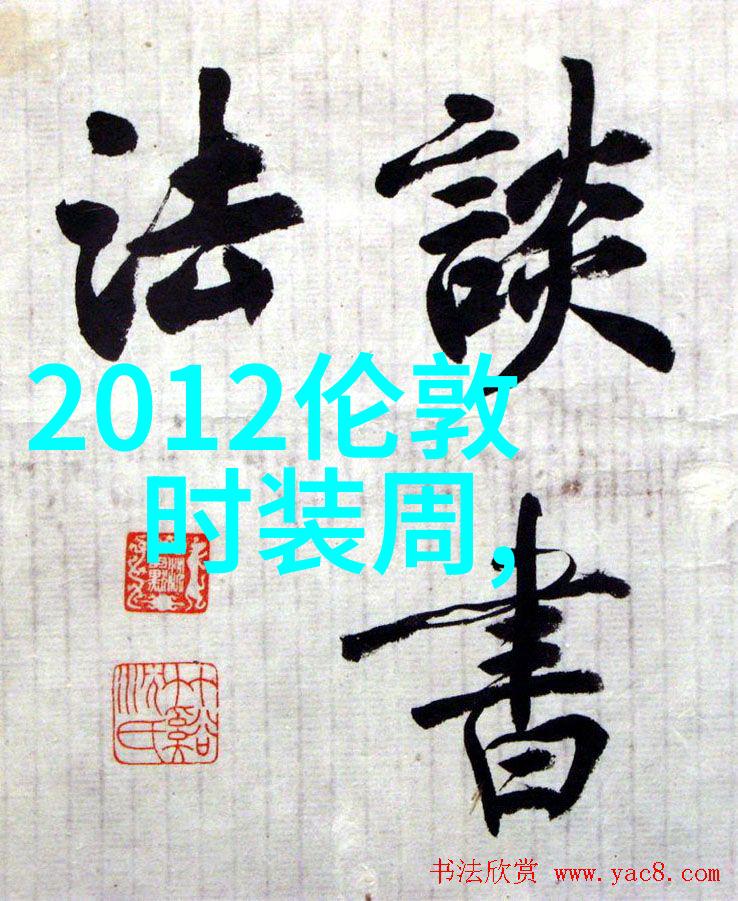 談書
法
2012伦敦
时装周,
书法欣赏 www.yac8.com